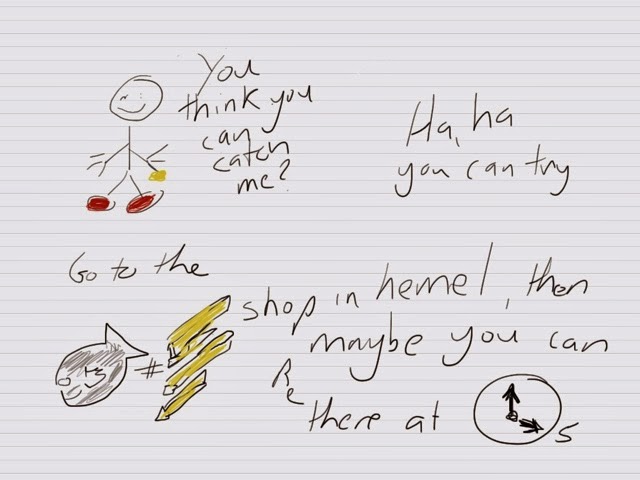 You
think you
can
catch
me?
Ha, ha
you can try
Go to the
shop in hemel, then
maybe you can
Be
there at
5